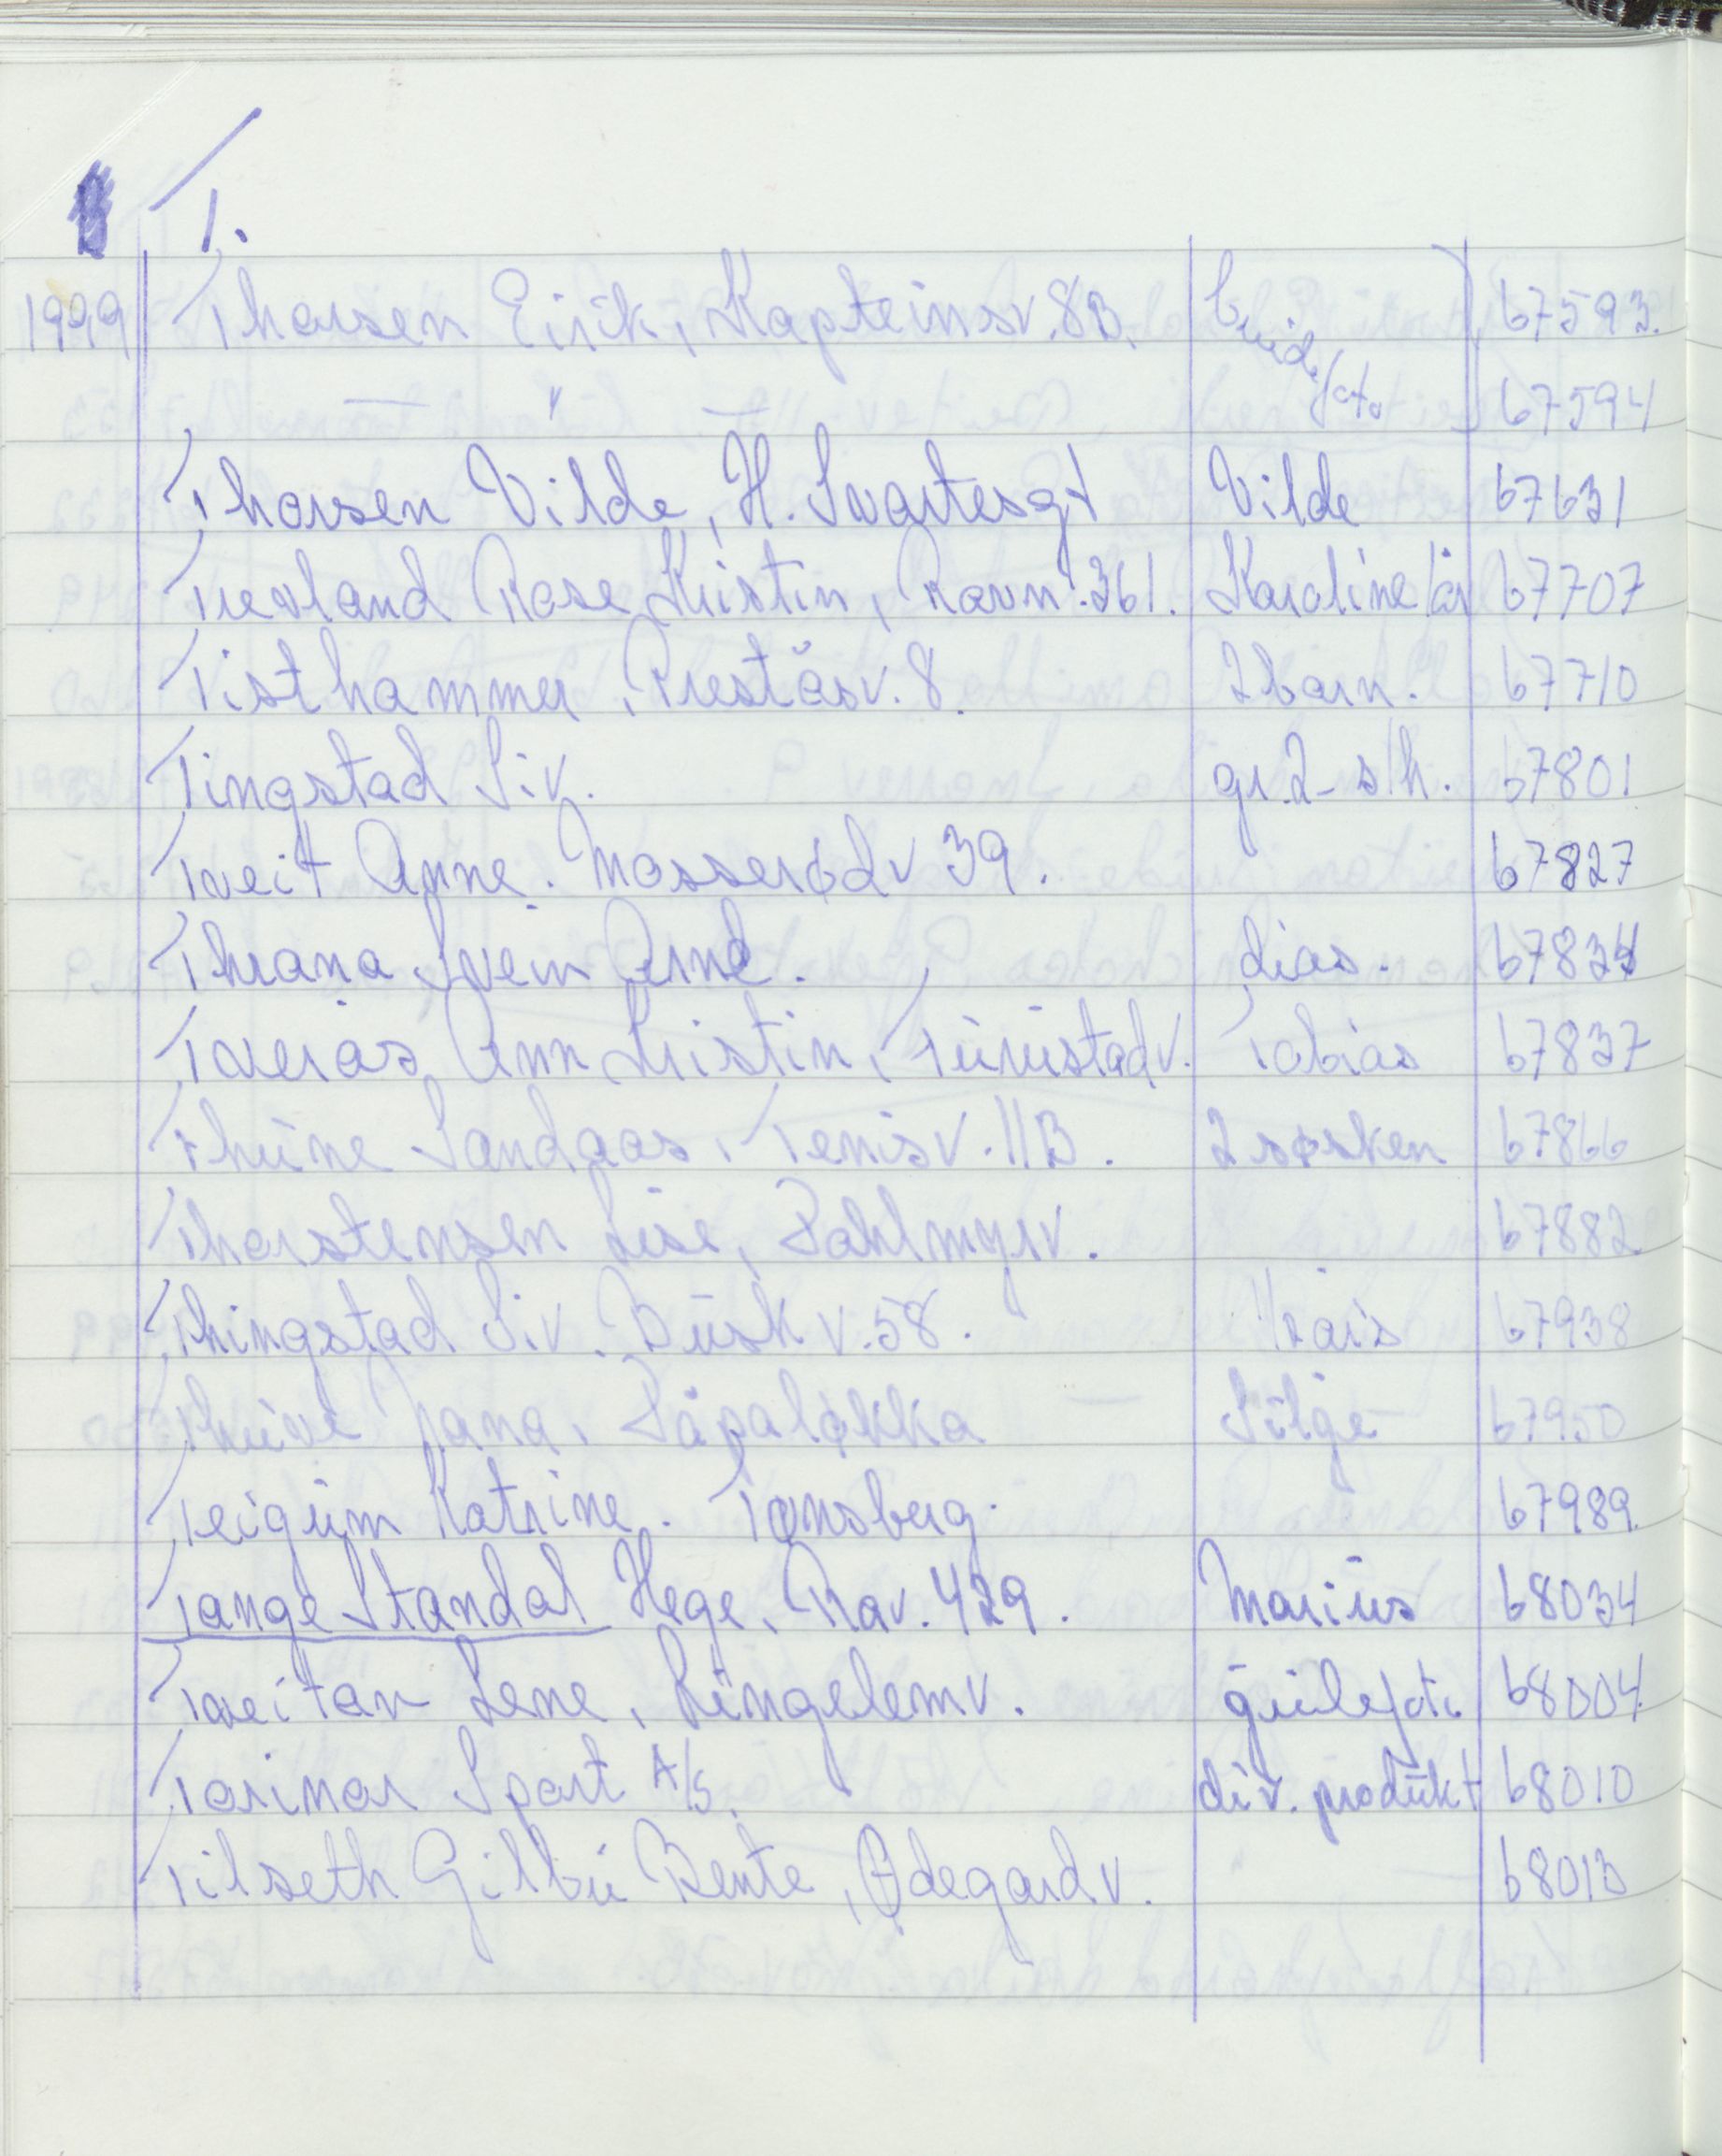 T.
1999 Thorsen Eirik, Kapteinsv. 8B. brud.foto 67593.
— " — 67594
Thorsen Vilde, H. Svartesgt Vilde 67631
Trevland Rose Kristin, Ravnv. 361. Karoline 1år 67707
Tisthammer, Preståsv. 8. 2 barn. 67710
Tingstad Siv. gr. 2 - s/h. 67801
Tveit Anne. Mosserødv 39. 67827
Thrana Svein Arne. dias. 67834
Tverås Ann Kristin, Turistadv. Tobias 67837
Thrine Sandaas, Tenisv. 11B. 2 søsken 67866
Thorstensen Lise, Pohlmyrv. 67882
Thingstad Siv. Buskv. 58. 1/2 års 67938
Jana, Påpaløkka — Silje 67950
Teigum Katrine. Tønsberg. 67989.
Tange Standal Hege, Rav. 429. Marius 68034
Tveitan Lene, Lingelemv. gullfoto 68004
Torimor Sport A/S. div. produkt 68010
Tilseth Gilbu Bente, Ødegardv. 68013